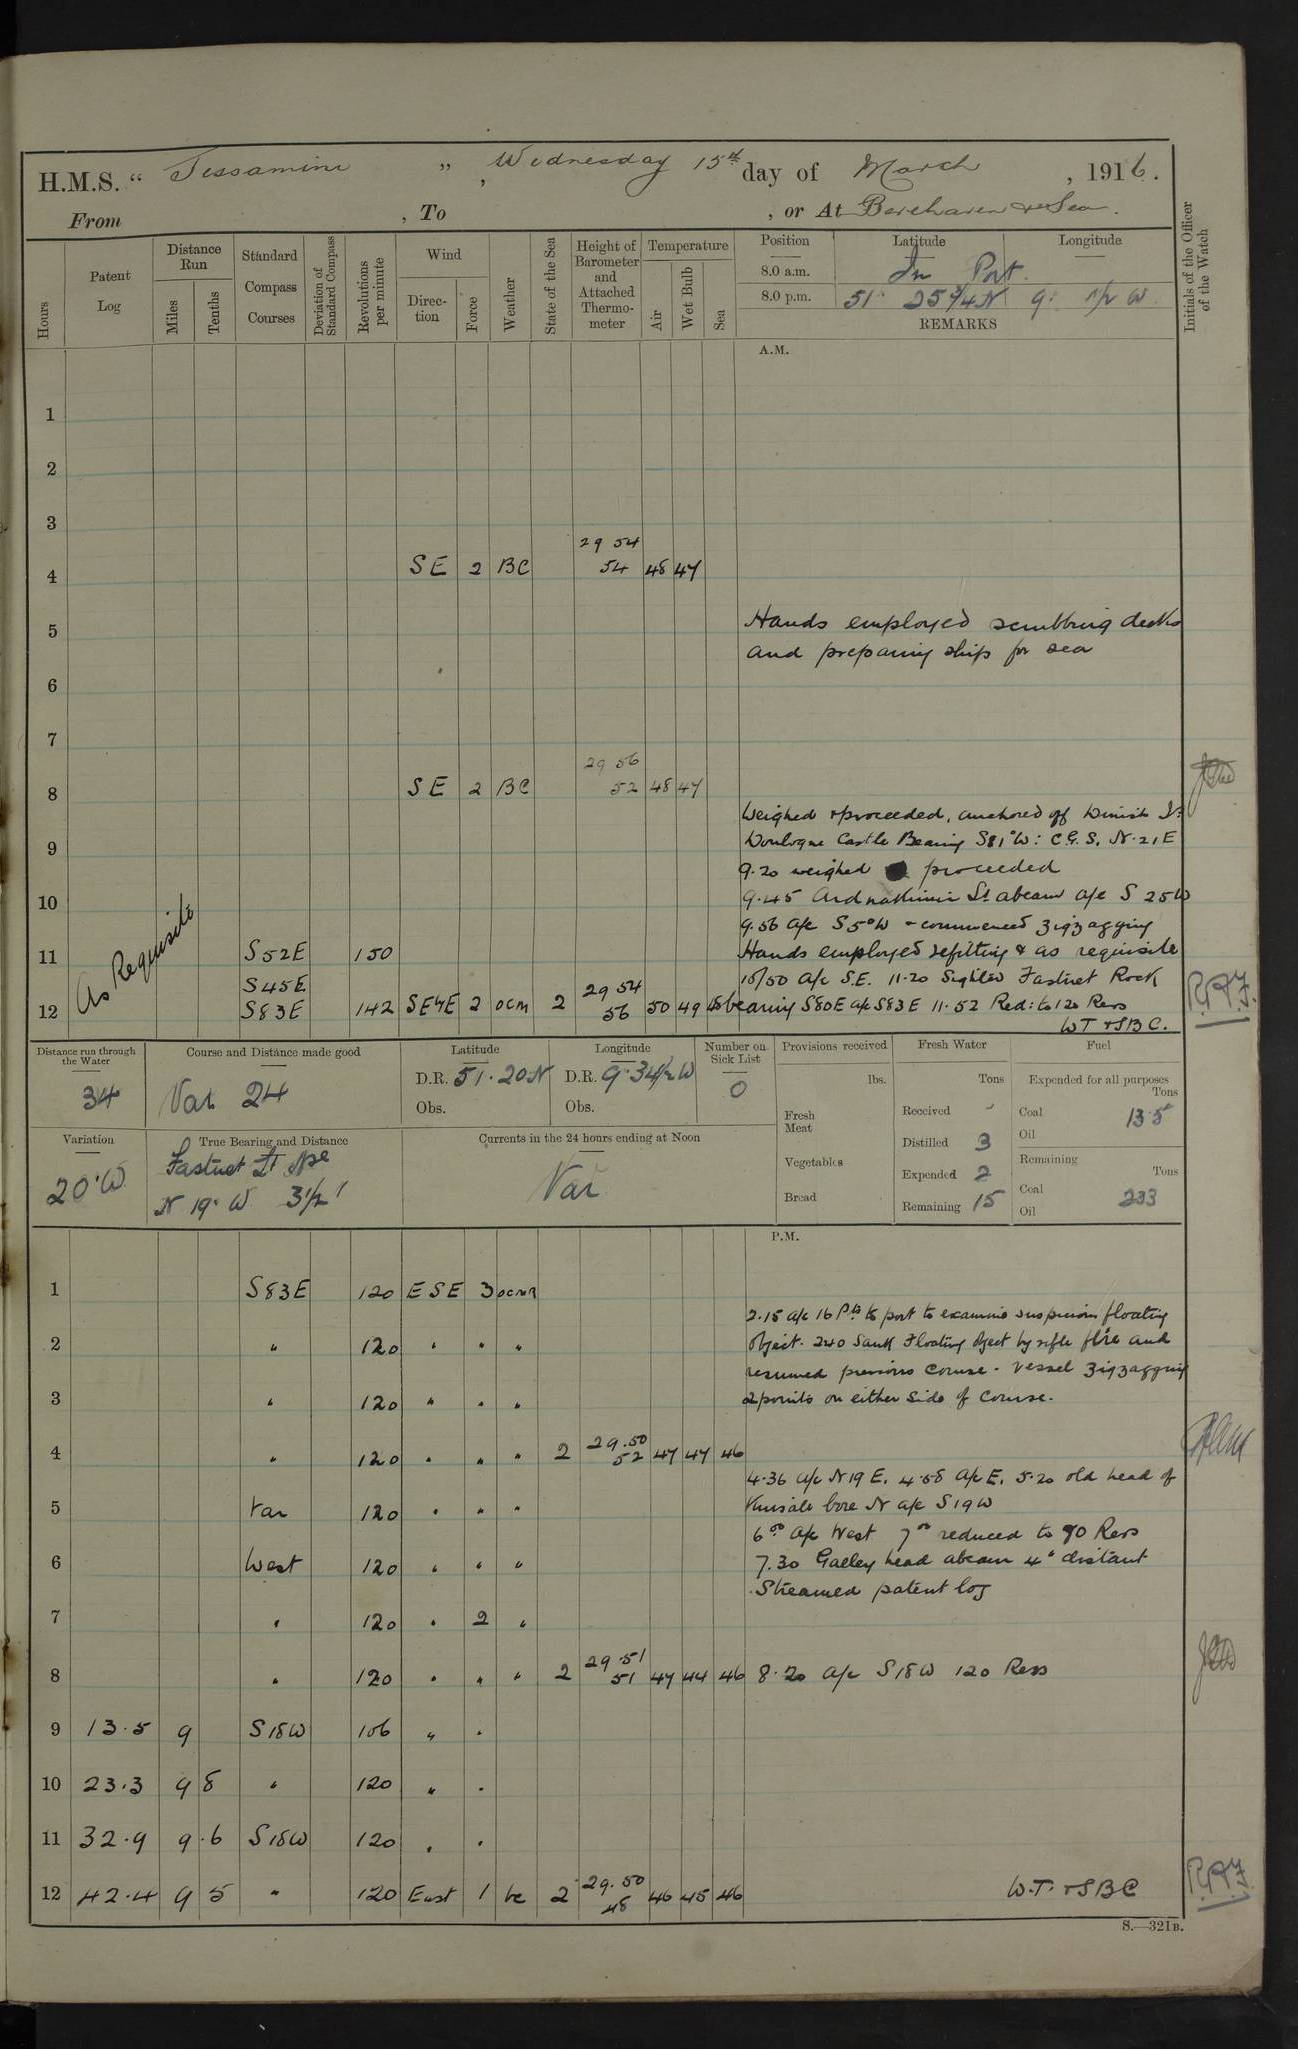 H.M.S. " Jessamine ", Wednesday 15th day of March, 1916.
From , To , or At Berehaven & Sea.
Hours
Patent Log
Distance Run
Miles
Tenths
Standard Compass Courses
Deviation of Standard Compass
Revolutions per minute
Wind
Direction
Force
Weather
State of the Sea
Height of Barometer and Attached Thermometer
Temperature
Air
Wet Bulb
Sea
Position
Latitude
Longitude
8.0 a.m. In Port.
8.0 p.m. 51° 25 3/4 N 9° W
REMARKS
Initials of the Officer of the Watch
A.M.
1
2
3
29 54
4 SE 2 BC 54 48 47
Hands employed scrubbing decks
5
and preparing ship for sea
6
7
29 56
8 SE 2 BC 52 48 47
Weighed & proceeded, anchored off Dinish Id:
9 Castle Bearing S81°W: C.G.S. N.21E
9.20 weighed proceeded
10 9.45 Lt abeam a/c S 25W
9.56 a/c S5°W & commenced zigzagging
As Requisite
11 S52E 150 Hands employed refitting & as requisite
S45E 29 54 10/50 a/c S.E. 11.20 Sighted Fastnet Rock
12 S83E 142 SE4E 2 ocm 2 56 50 49 48 bearing S80E a/c S83E 11.52 Red: to 120 Revs
WT & SBC.
Distance run through the Water
34
Course and Distance made good
Var 24
Latitude
D.R. 51.20N
Obs.
Longitude
D.R. 9.34 1/2 W
Obs.
Number on Sick List
0
Provisions received
lbs.
Fresh Meat
Vegetables
Bread
Fresh Water
Tons
Received -
Distilled 3
Expended 2
Remaining 15
Fuel
Expended for all purposes
Tons
Coal 13.5
Oil
Remaining
Tons
Coal 233
Oil
Variation
20°W
True Bearing and Distance
Fastnet Lt Hse
N 19° W 3 1/2'
Currents in the 24 hours ending at Noon
Var
P.M.
1 S83E 120 ESE 3 ocmr
2.15 a/c 16 Pts to port to examine suspicious floating
2 " 120 " " " object. 240 Sank Floating object by rifle fire and
resumed previous course. vessel zigzagging
3 " 120 " " " 2 points on either side of course.
29.50
4 " 120 " " " 2 52 47 47 46
4.36 a/c N19E. 4.58 a/c E. 5.20 old head of
5 Var 120 " " " Kinsale bore N a/c S19W
6.00 a/c West 7.00 reduced to 90 Revs
6 West 120 " " " 7.30 Galley head abeam 4' distant
Streamed patent log
7 " 120 " 2 "
29.51
8 " 120 " " " 2 51 47 44 46 8.20 a/c S18W 120 Revs
9 13.5 9 S18W 106 " "
10 23.3 9 8 " 120 " "
11 32.9 9.6 S18W 120 " "
29.50
12 42.4 9 5 " 120 East 1 bc 2 48 46 45 46 W.T. & SBC
R.P.F.
S.—321B.